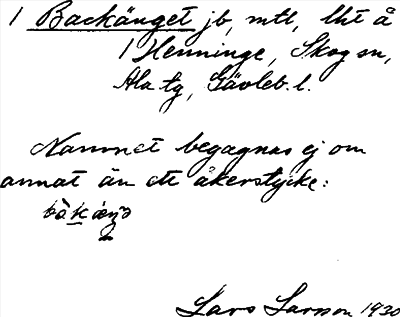 1 Backänget jb, mtl, lht å
1 Henninge, Skog sn,
Ala tg, Gävleb. l.
Namnet begagnas ej om
annat än ett åkerstycke:
Lars Larson 1930